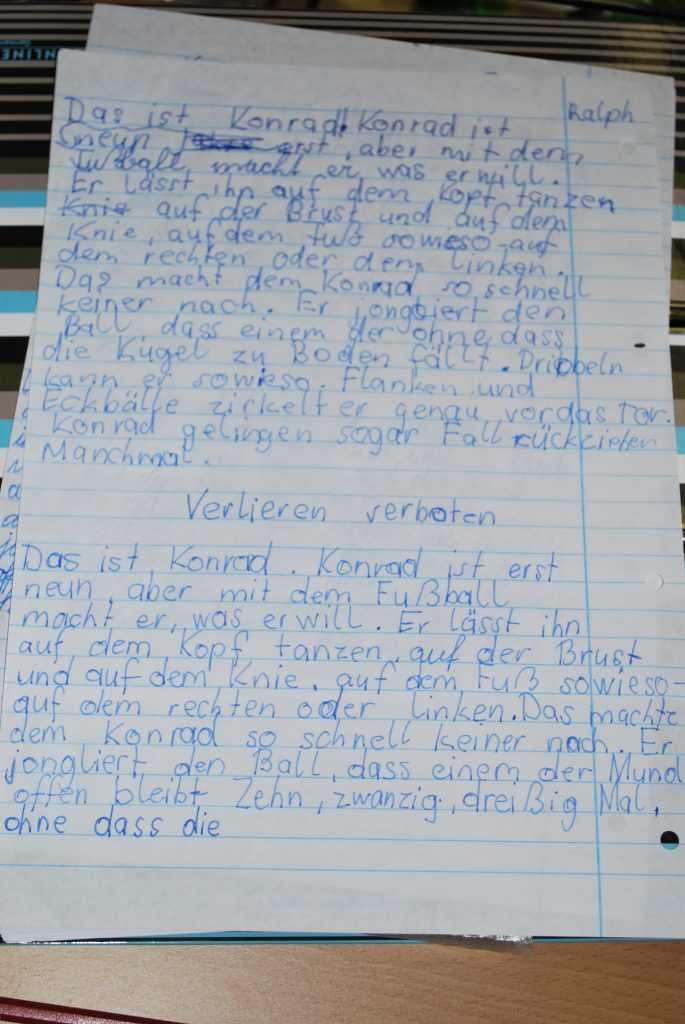 ONLINE
Ralph
Das ist Konrad. Konrad ist
neun erst, aber mit dem
Fußball macht er was er will.
Er lässt ihn auf dem Kopf tanzen
Knie auf der Brust und auf dem
Knie, auf dem Fuß sowieso-auf
dem rechten oder dem linken.
Das macht dem Konrad so schnell
keiner nach. Er jongliert den
Ball, dass einem der ohne dass
die Kugel zu Boden fällt. Dribbeln
kann er sowieso. Flanken und
Eckbälle zirkelt er genau vor das Tor.
Konrad gelingen sogar Fallrückzieher
Manchmal.
Verlieren verboten
Das ist Konrad. Konrad ist erst
neun, aber mit dem Fußball
macht er, was er will. Er lässt ihn
auf dem Kopf tanzen, auf der Brust
und auf dem Knie, auf dem Fuß sowieso-
auf dem rechten oder linken. Das machte
dem Konrad so schnell keiner nach. Er
jongliert den Ball, dass einem der Mund
offen bleibt Zehn, zwanzig, dreißig Mal,
ohne dass die